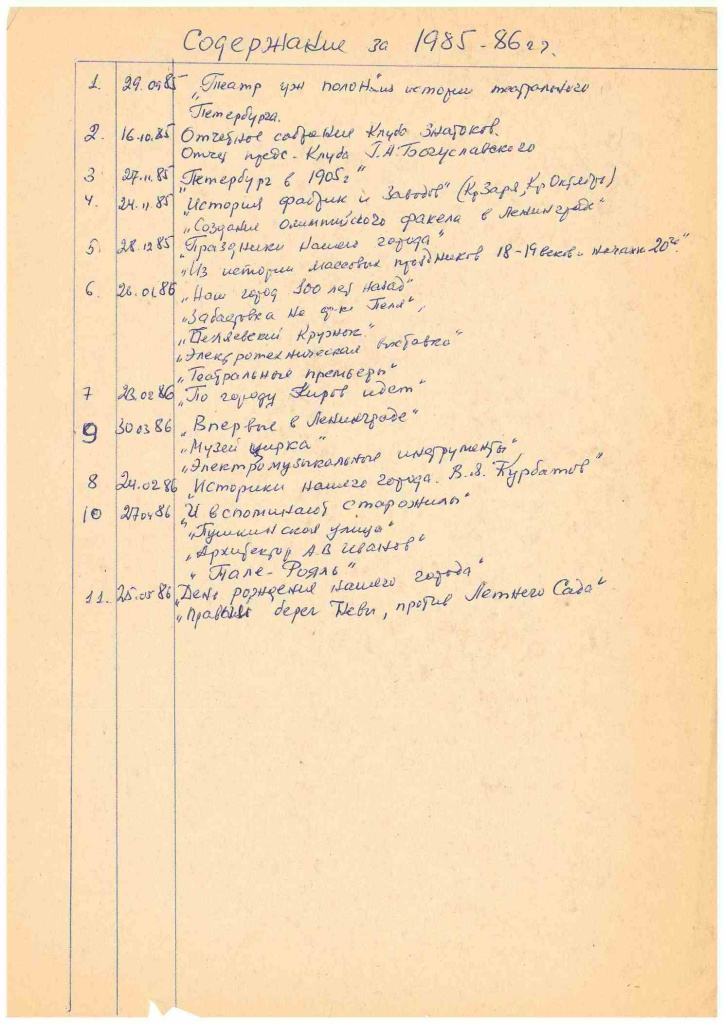 Содержание за 1985-86гг.
1. 29.09.85 „Театр уж полон" из истории театрального
Петербурга.
2. 16.10.85 Отчетное собрание Клуба Знатоков.
Отчет предс. Клуба Г.А.Богуславского
3 27.11.85 „Петербург в 1905г"
4. 24.11.85 „История фабрик и заводов" (Кр Заря, Кр Октябрь)
„Создание олимпийского факела в Ленинграде"
5. 28.12.85 „Праздники нашего города"
„Из истории массовых праздников 18-19 веков и начала 20го".
6. 26.01.86 „Наш город 100 лет назад"
„Забастовка на ф-ке Пеля",
„Беляевский Кружок"
„Электротехническая выставка"
„Театральные премьеры"
7 23.02.86 „По городу Киров идет"
9 30.03.86 „Впервые в Ленинграде"
„Музей цирка"
„Электромузыкальные инструменты"
8 24.02.86 „Историки нашего города. В.Я. Курбатов"
10 27.04.86 „И вспоминают старожилы"
„Пушкинская улица"
„Архитектор А.В Иванов"
„Пале-Рояль"
11. 25.05.86 „День рождения нашего города"
„Правый берег Невы, против Летнего Сада"